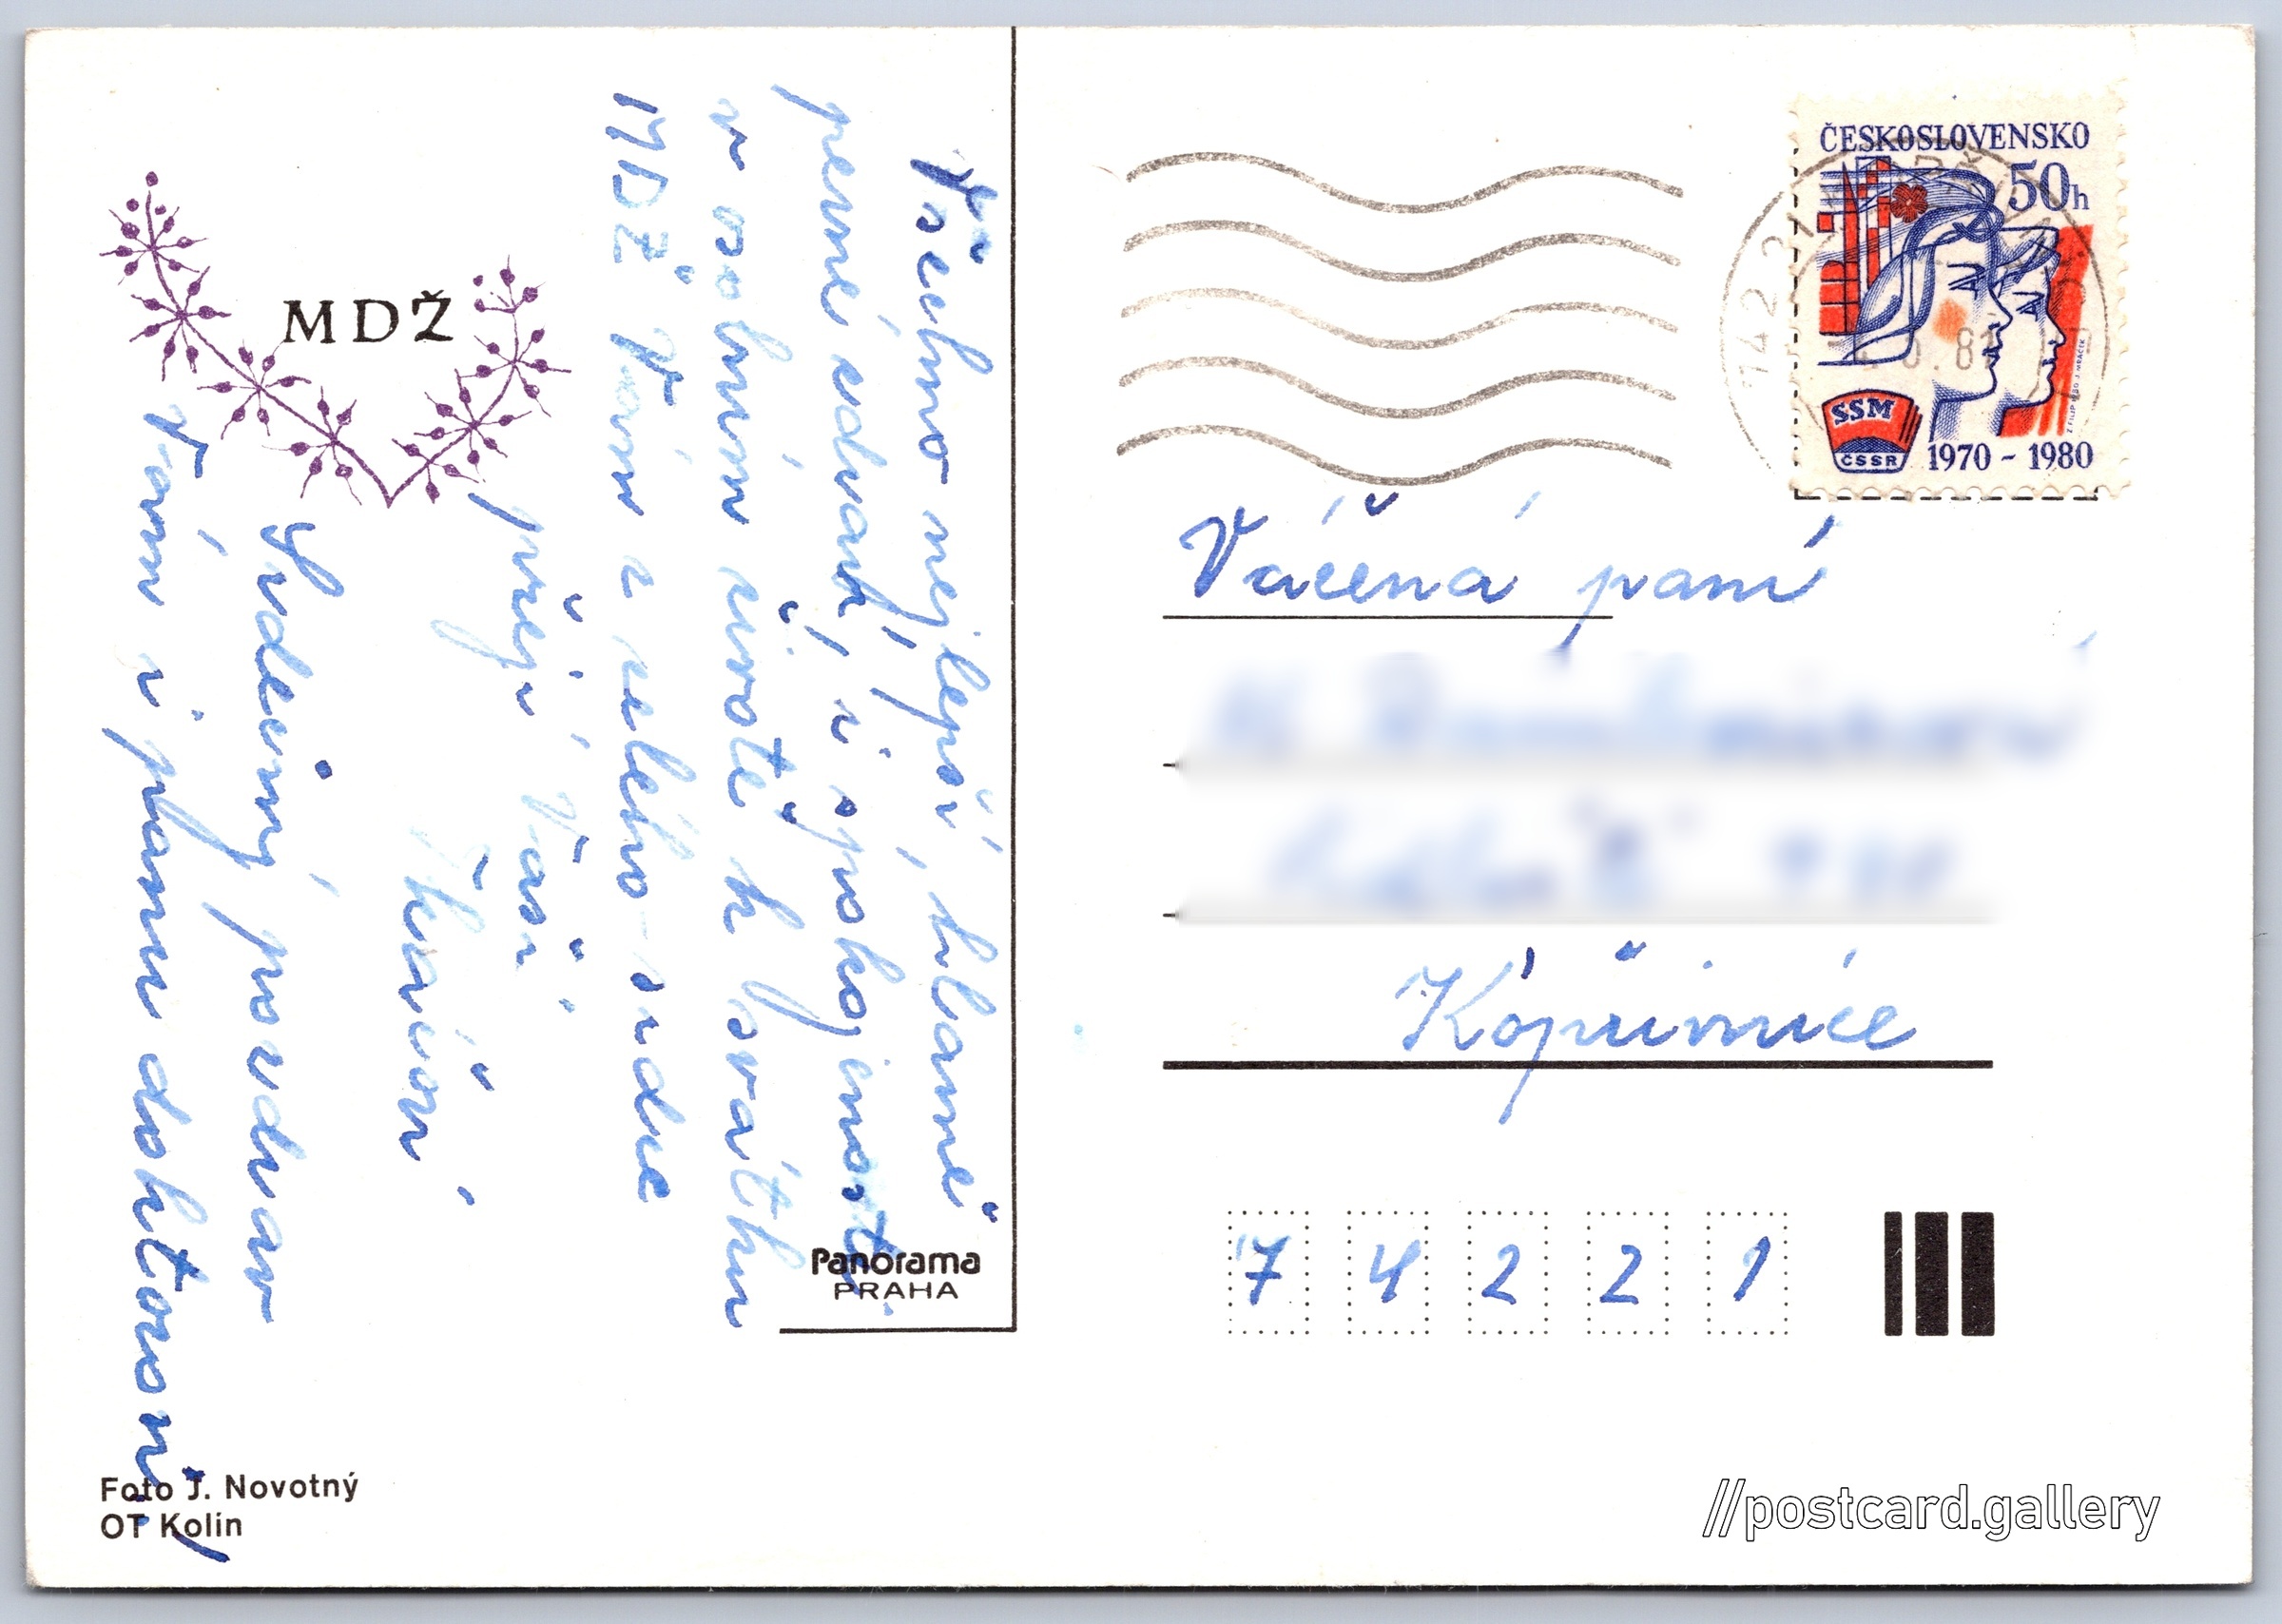 MDŽ
Všechno nejlepší, hlavně
pevné zdraví, i spokojenosti
v osobním životě k svátku
MDŽ Vám z celého srdce
přejí Vaši
Srdečný pozdrav
Vám i panu doktorovi
Foto J. Novotný
OT Kolín
Panorama
PRAHA
ČESKOSLOVENSKO
50h
SSM
ČSSR
1970 - 1980
742 21
Váčená paní
Kopřivnice
7 4 2 2 1
//postcard.gallery